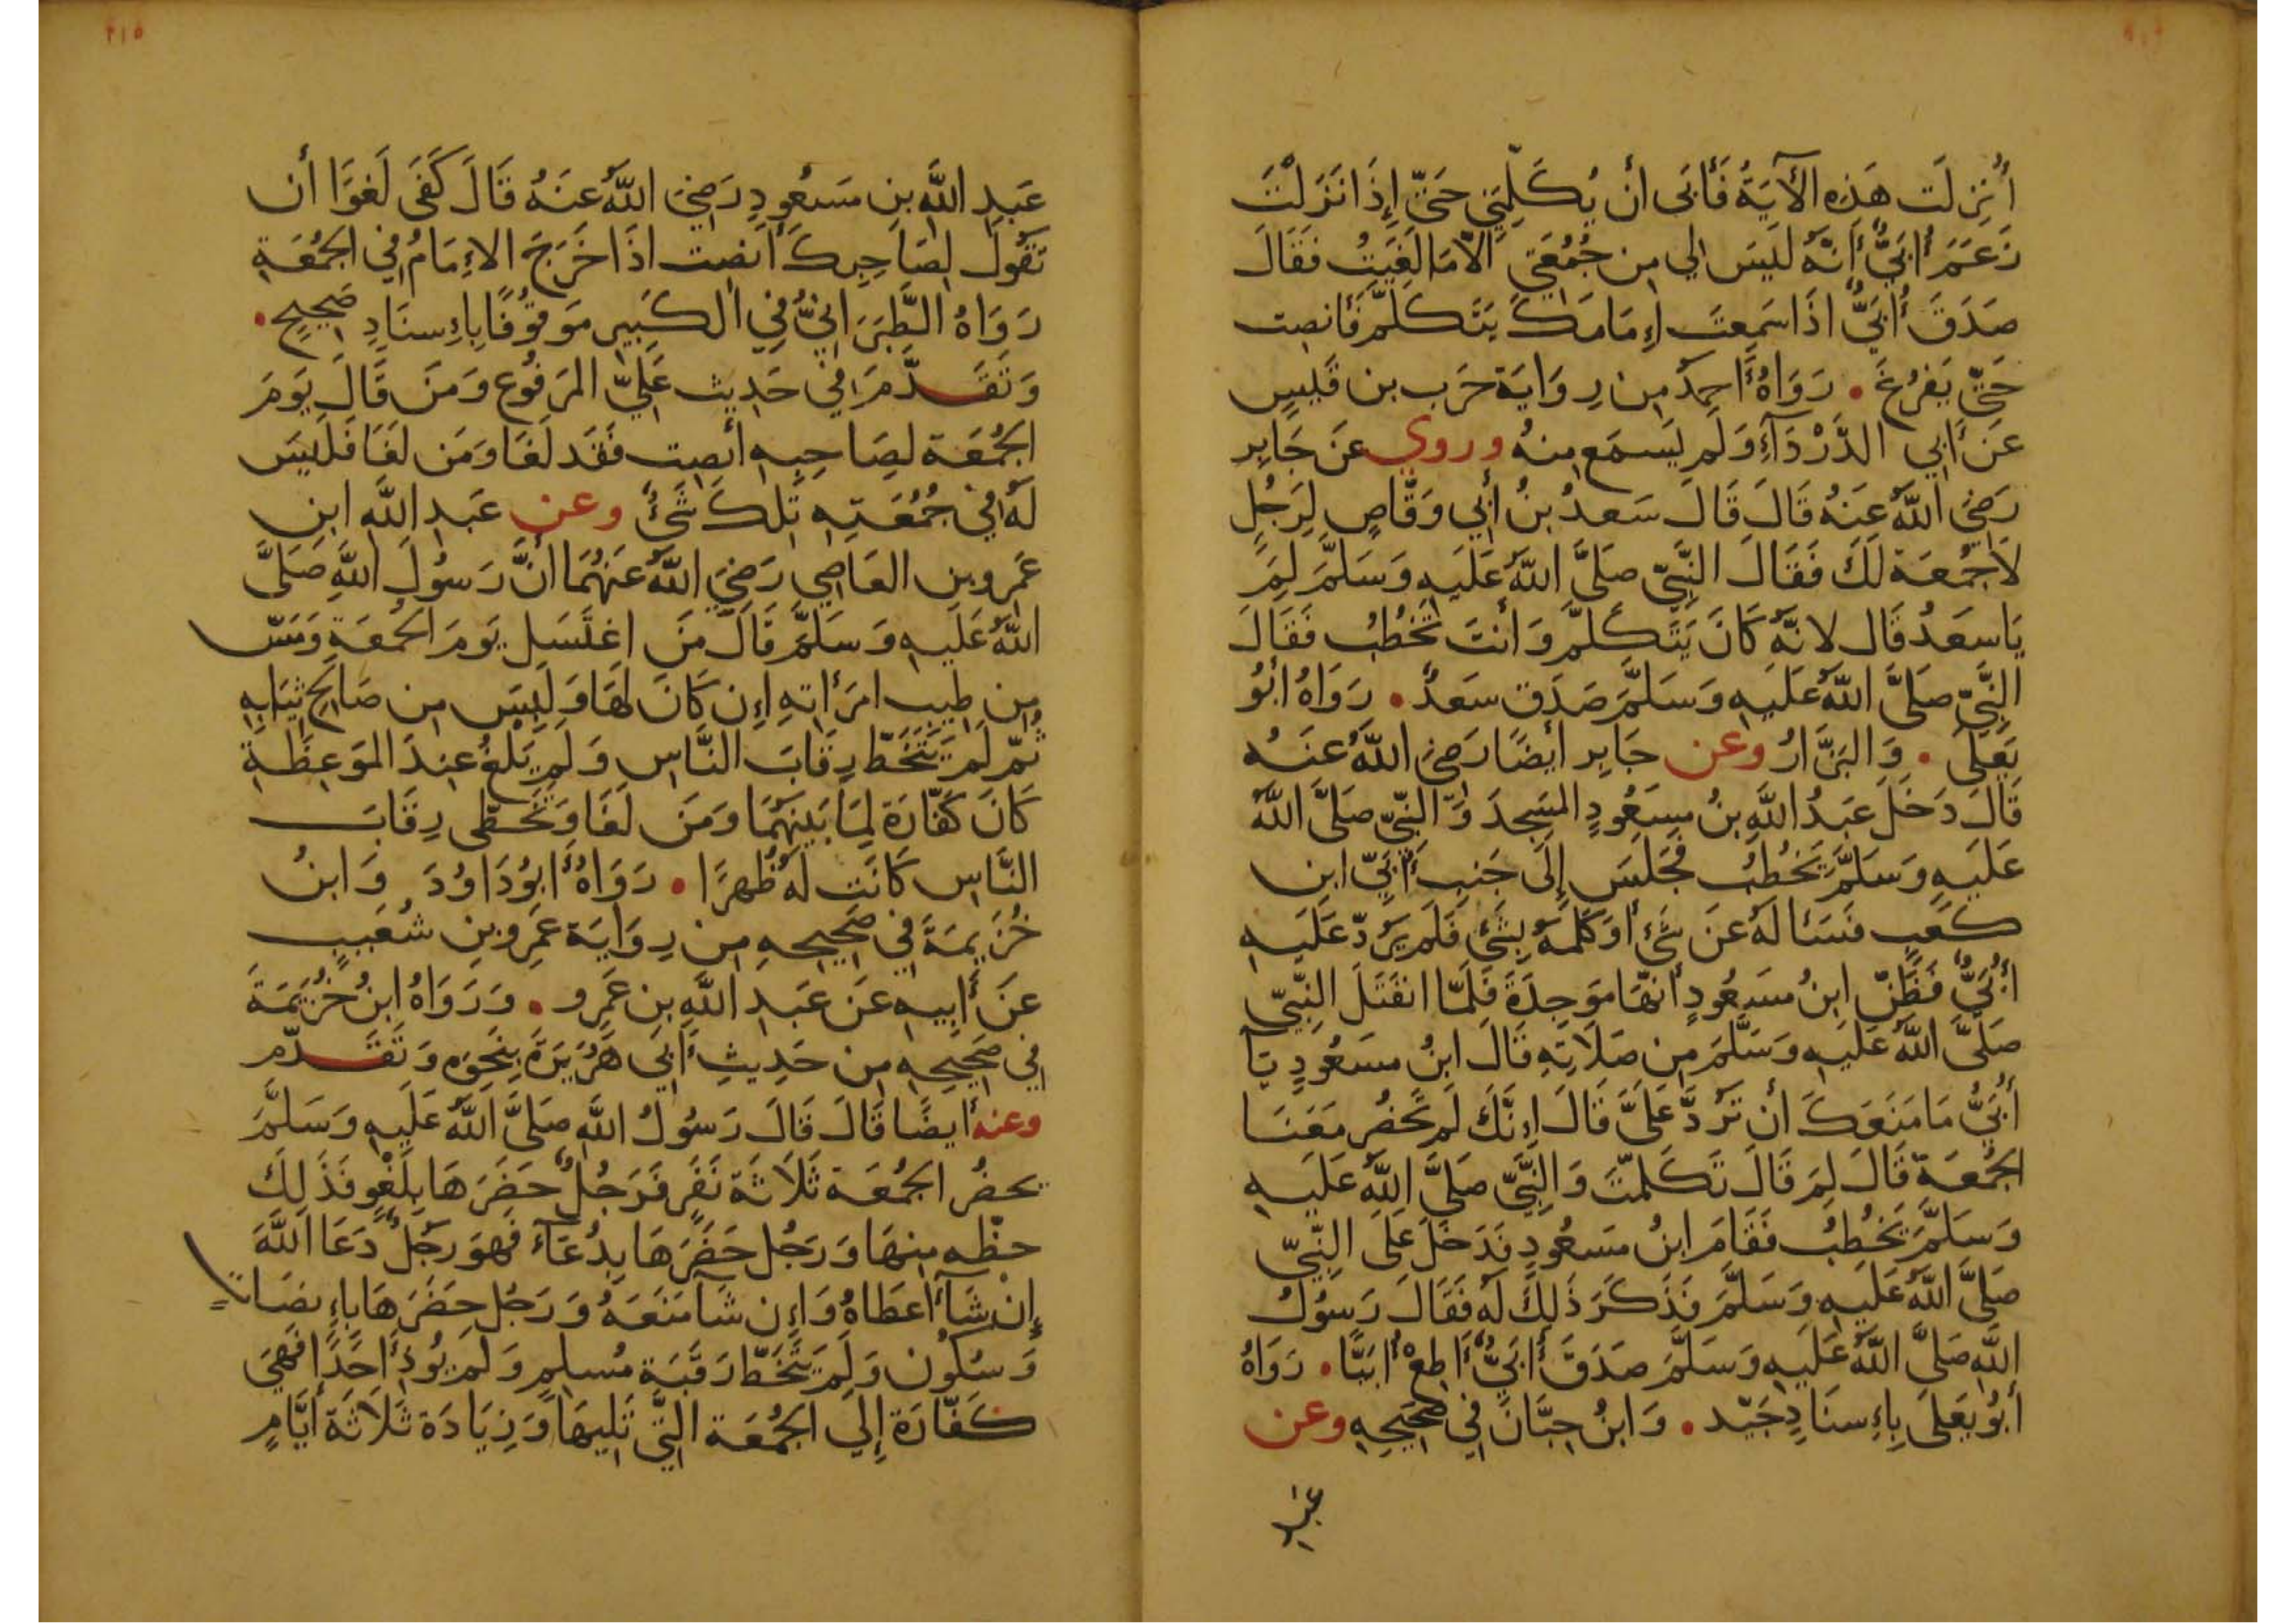 أُنزِلَت هَذِه الآيَةُ فَأَبَى أن يُكَلِّمَنِي حَتَّى إِذَا نَزَلْتَ
زَعَمَ أُبَيٌّ أَنَّهُ لَيسَ لِي مِن جُمُعَتِي الَّا مَا لَغَيتُ فَقَالَ
صَدَقَ أُبَيٌّ اذَا سَمِعتَ إِمَامَكَ يَتَكَلَّم فَأَنصِت
حَتَّى يَفرُغَ . رَوَاهُ أَحمَدُ مِن رِوَايَة حَرب بن قَيسٍ
عَن أَبِي الدَّرْدَآءِ وَلَم يَسمَع مِنهُ وروي عَن جَابِر
رَضِيَ اللَّهُ عَنهُ قَالَ قَالَ سَعدُ بنُ أَبِي وَقَّاصٍ لِرَجُلٍ
لَا جُمُعَة لَكَ فَقَالَ النَّبِيّ صَلَّى اللَّهُ عَلَيهِ وَسَلَّمَ لِمَ
يَا سَعدُ قَال لانَّهُ كَانَ يَتَكَلَّم وَأَنتَ تَخطُبُ فَقَالَ
النَّبِيّ صَلَّى اللَّهُ عَلَيهِ وَسَلَّمَ صَدَقَ سَعدٌ . رَوَاهُ أَبُو
يَعلَى . وَالبَزَّارُ وعن جَابِر أَيضًا رَضِيَ اللَّهُ عَنهُ
قَالَ دَخَلَ عَبدُ اللَّهِ بنُ مَسعُودٍ المَسجِدَ وَالنَّبِيّ صَلَّى اللَّهُ
عَلَيهِ وَسَلَّمَ يَخطُبُ فَجَلَسَ إِلَى جَنبِ أُبَيّ ابنِ
كَعبٍ فَسَئَالَهُ عَن شَيءٍ أَو كَلَّمَهُ بِشَيءٍ فَلَم يَرُدّ عَلَيهِ
أُبَيٌّ فَظَنَّ ابنُ مَسعُودٍ أَنَّهَا مَوجِدَةٌ فَلَمَّا انفَتَلَ النَّبِيّ
صَلَّى اللَّهُ عَلَيهِ وَسَلَّمَ مِن صَلَاتِهِ قَالَ ابنُ مسعُودٍ يَا
أُبَيُّ مَا مَنَعَكَ أن تَرُدَّ عَلَيَّ قَالَ إِنَّكَ لَم تَحضُر مَعَنَا
الجُمُعَة قَالَ لِمَ قَالَ تَكَلَّمتَ وَالنَّبِيّ صَلَّى اللَّهُ عَلَيهِ
وَسَلَّمَ يَخطُبُ فَقَامَ ابنُ مَسعُودٍ فَدَخَلَ عَلَى النَّبِيّ
صَلَّى اللَّهُ عَلَيهِ وَسَلَّمَ فَذَكَرَ ذَلِكَ لَهُ فَقَالَ رَسُولُ
اللَّهِ صَلَّى اللَّهُ عَلَيهِ وَسَلَّمَ صَدَقَ أُبَيٌّ أَطِعْ أُبَيًّا . رَوَاهُ
أَبُو يَعلَى بِإِسنَادٍ جَيِّد . وَابنُ حِبَّانَ فِي صَحِيحِهِ وعن
عبد
٢١٥
عَبدِ اللَّهِ بنِ مَسعُودٍ رَضِيَ اللَّهُ عَنهُ قَالَ كَفَى لَغوًا أن
تَقُولَ لِصَاحِبِكَ أَنصِت اذَا خَرَجَ الإِمَامُ فِي الجُمُعَةِ
رَوَاهُ الطَّبَرَانِيُّ فِي الكَبِيرِ مَوقُوفًا بِإِسنَادٍ صَحِيحٍ .
وَتَقَدَّمَ فِي حَدِيث عَلِيّ المَرفُوع وَمَن قَالَ يَومَ
الجُمُعَة لِصَاحِبِهِ أَنصِت فَقَد لَغَا وَمَن لَغَا فَلَيسَ
لَهُ فِي جُمُعَتِهِ تِلكَ شَيءٌ وعن عَبدِ اللَّهِ ابنِ
عَمرو بنِ العَاصِي رَضِيَ اللَّهُ عَنهُمَا أَنَّ رَسُولَ اللَّهِ صَلَّى
اللَّهُ عَلَيهِ وَسَلَّمَ قَالَ مَن اغتَسَل يَومَ الجُمُعَةِ وَمَسّ
مِن طِيبِ امرَأَتِهِ إِن كَانَ لَهَا وَلَبِسَ مِن صَالِحِ ثِيَابِهِ
ثُمّ لَم يَتَخَطّ رِقَابَ النَّاسِ وَلَم يَلغُ عِندَ المَوعِظَةِ
كَانَ كَفَّارَة لِمَا بَينَهُمَا وَمَن لَغَا وَتَخَطَّى رِقَابَ
النَّاسِ كَانَت لَهُ ظُهرًا . رَوَاهُ أَبُو دَاوُدَ وَابنُ
خُزَيمَةَ فِي صَحِيحِهِ مِن رِوَايَة عَمرِو بنِ شُعَيبٍ
عَن أَبِيهِ عَن عَبدِ اللَّهِ بنِ عَمرٍو . وَرَوَاهُ ابنُ خُزَيمَةَ
فِي صَحِيحِهِ مِن حَدِيثِ أَبِي هُرَيرَةَ بِنَحوِهِ وَتَقَدَّم
وعنه أَيضًا قَالَ قَالَ رَسُولُ اللَّهِ صَلَّى اللَّهُ عَلَيهِ وَسَلَّمَ
يحضُر الجُمُعَة ثَلَاثَة نَفَرٍ فَرَجُلٌ حَضَرَهَا بِلَغْوٍ فَذَلِكَ
حظّه مِنهَا وَرَجُل حَضَرَهَا بِدُعَآءٍ فَهوَ رَجُلٌ دَعَا اللَّهَ
إِنْ شَآءَ أَعطَاهُ وَإِن شَآ مَنَعَهُ وَرَجُل حَضَرَهَا بِإِنصَاتٍ
وَسُكُون وَلَم يَتَخَطّ رَقَبَة مُسلِمٍ وَلَم يُؤذِ أَحَدًا فَهِيَ
كَفَّارَة إِلَى الجُمُعَة الَّتِي تَلِيهَا وَزِيَادَة ثَلَاثَة أَيَّامٍ